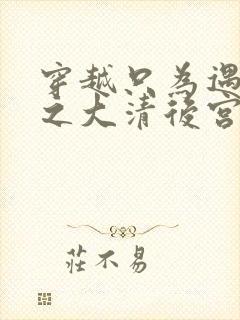 穿越只為遇
之大清後宮
莊不易